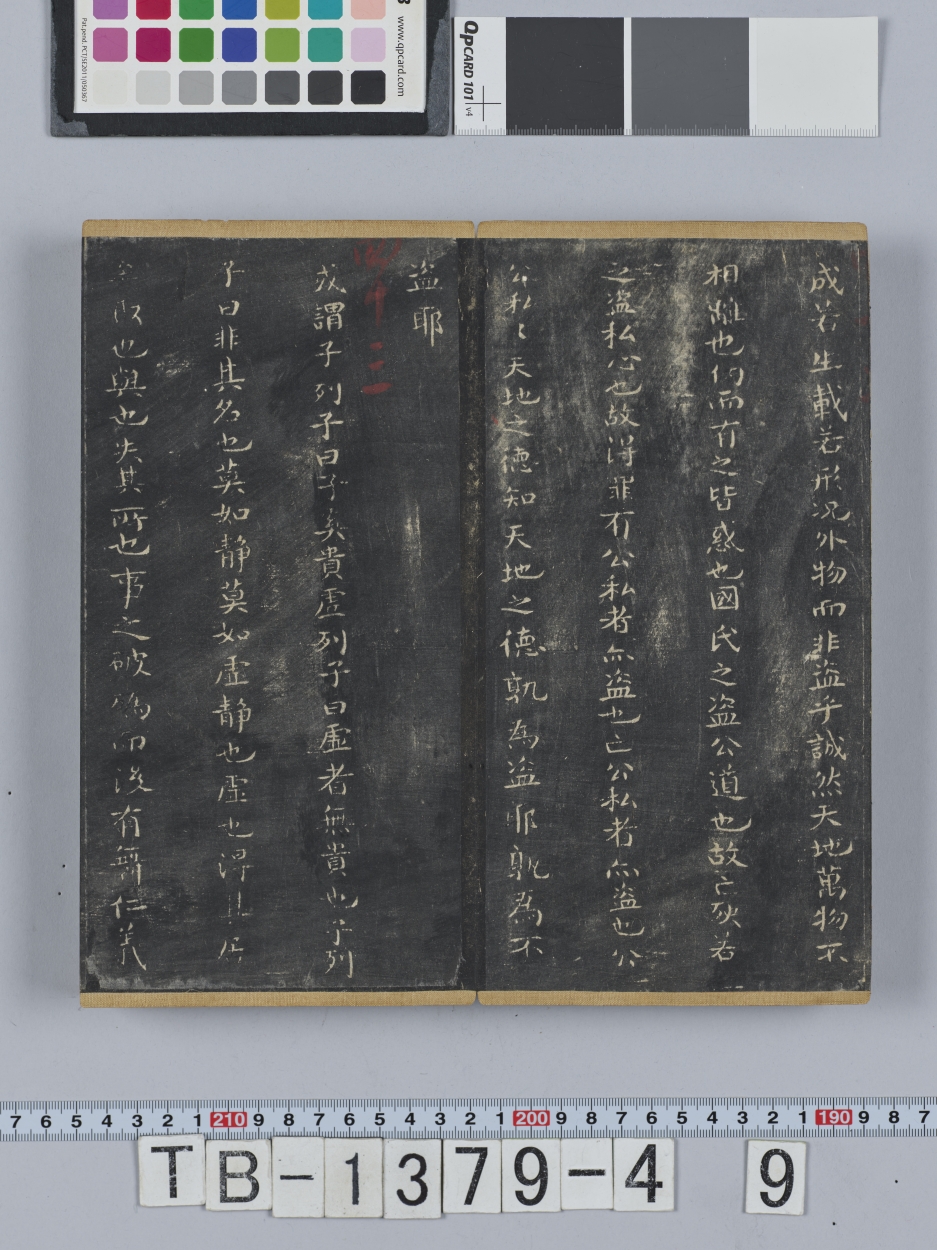 www.qpcard.com
Pat.pend. PCT/SE2011/050367
QPCARD 101 v4
成若生載若形况外物而非盗乎誠然天地萬物不
相離也仞而有之皆惑也國氏之盗公道也故亡殃若
之盗私心也故得罪有公私者亦盗也亡公私者亦盗也公
公私〻天地之德知天地之德孰為盗耶孰為不
盗耶
或謂子列子曰子奚貴虛列子曰虛者無貴也子列
子曰非其名也莫如静莫如虛静也虛也得其居
矣取也與也失其所也事之破而後有舞仁義
7 6 5 4 3 2 1 210 9 8 7 6 5 4 3 2 1 200 9 8 7 6 5 4 3 2 1 190 9 8 7
TB-1379-4 9